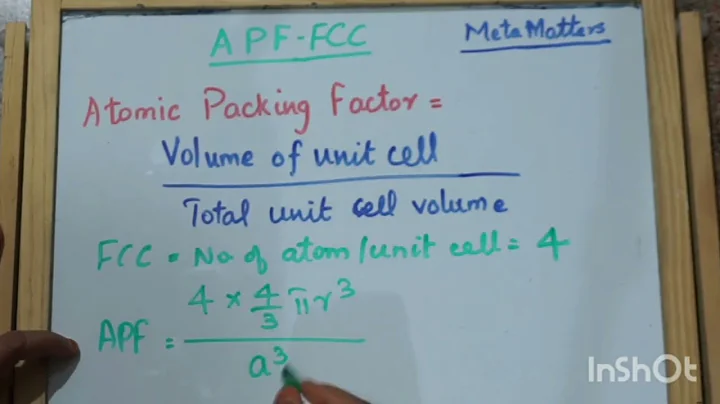 APF-FCC
MetaMatters
Atomic Packing Factor =
Volume of unit cell
Total unit cell volume
FCC = No of atom/unit cell = 4
APF = 4 × 4/3 πr³
a³
InShOt